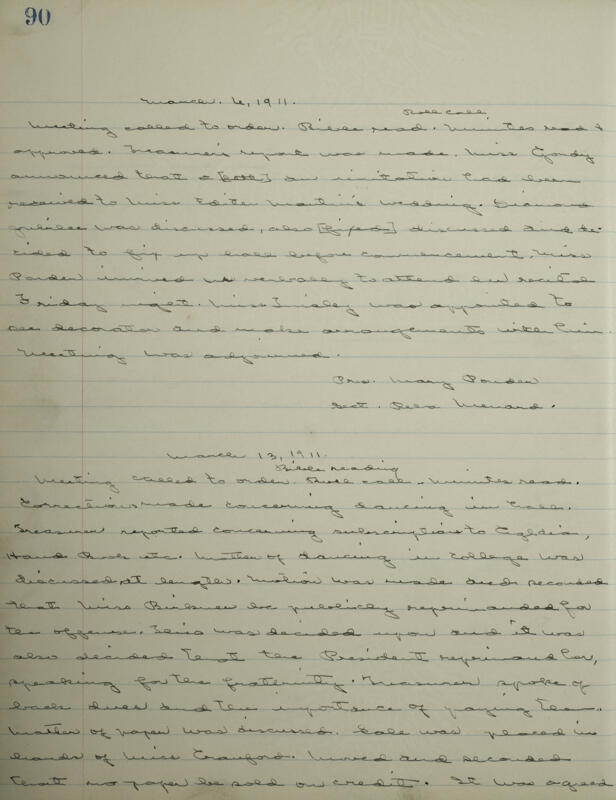 90
March. 6, 1911.
Roll call
Meeting called to order. Bible read. Minutes read &
approved. Treasurer's report was made. Miss Gordy
announced that a an invitation had been
received to Miss Ester Martin's wedding. Diamond
jubilee was discussed, also discussed and de-
cided to fix up hall before commencement. Miss
Pouder invited us verbally to attend her recital
Friday night. Miss Tinsley was appointed to
see decorator and make arrangements with him.
Meeting was adjourned.
Pres. Mary Pouder
Sect. Reba Menard.
March 13, 1911.
Bible reading
Meeting called to order. Roll call. Minutes read.
Corrections made concerning dancing in hall.
Treasurer reported concerning subscriptions to
Hand Book etc. Matter of dancing in college was
discussed at length. Motion was made and seconded
that Miss be publicly reprimanded for
the offense. This was decided upon and it was
also decided that the President reprimand her,
speaking for the fraternity. Treasurer spoke of
back dues and the importance of paying them.
Matter of paper was discussed. Sale was placed in
hands of Miss Crawford. Moved and seconded
that no paper be sold on credit. It was agreed